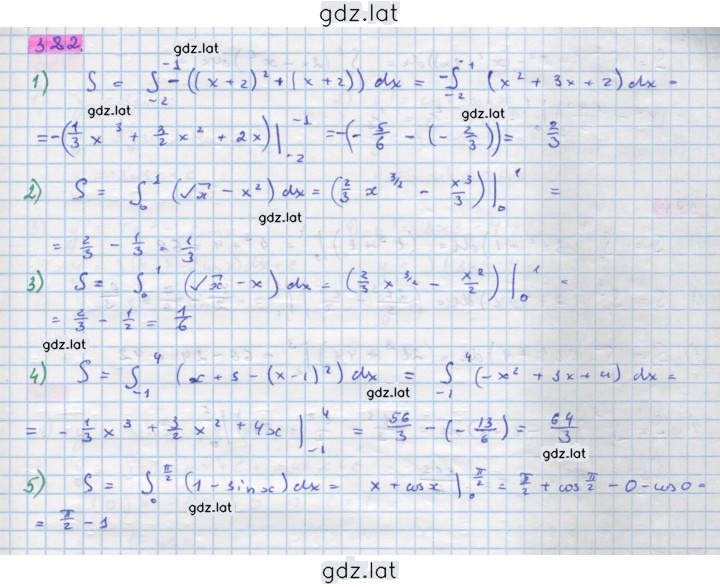 gdz.lat
382.
gdz.lat
1) S = ∫₋₂⁻¹ -((x+2)² + (x+2)) dx = -∫₋₂⁻¹ (x² + 3x + 2) dx =
gdz.lat gdz.lat
= -(1/3 x³ + 3/2 x² + 2x)|₋₂⁻¹ = -(-5/6 - (-2/3)) = 2/3
2) S = ∫₀¹ (√x - x²) dx = (2/3 x^(3/2) - x³/3)|₀¹ =
gdz.lat
= 2/3 - 1/3 = 1/3
3) S = ∫₀¹ (√x - x) dx = (2/3 x^(3/2) - x²/2)|₀¹ =
= 2/3 - 1/2 = 1/6
gdz.lat gdz.lat
4) S = ∫₋₁⁴ (x + 5 - (x-1)²) dx = ∫₋₁⁴ (-x² + 3x + 4) dx =
= -1/3 x³ + 3/2 x² + 4x |₋₁⁴ = 56/3 - (-13/6) = 64/3
gdz.lat
5) S = ∫₀^(π/2) (1 - sin x) dx = x + cos x |₀^(π/2) = π/2 + cos π/2 - 0 - cos 0 =
gdz.lat
= π/2 - 1
gdz.lat